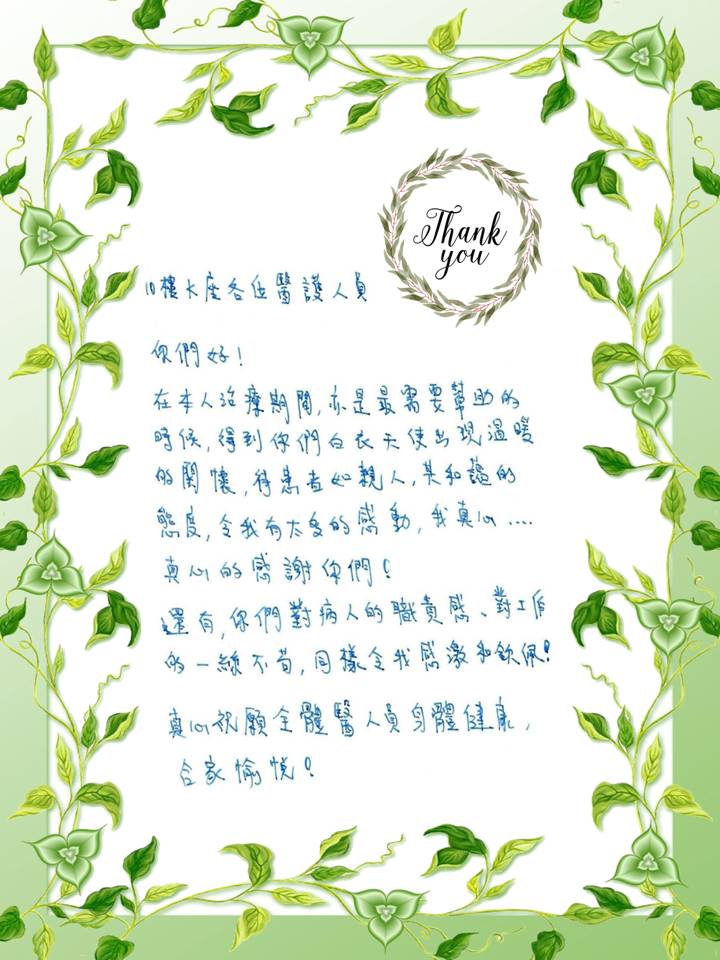 Thank
you
10樓大座各位醫護人員
你們好!
在本人治療期間,亦是最需要幫助的
時候,得到你們白衣天使出現溫暖
的關懷,待患者如親人,其和藹的
態度,令我有太多的感動,我真心....
真心的感謝你們!
還有,你們對病人的職責感、對工作
的一絲不苟,同樣令我感激和欽佩!
真心祝願全體醫人員身體健康,
合家愉悅!